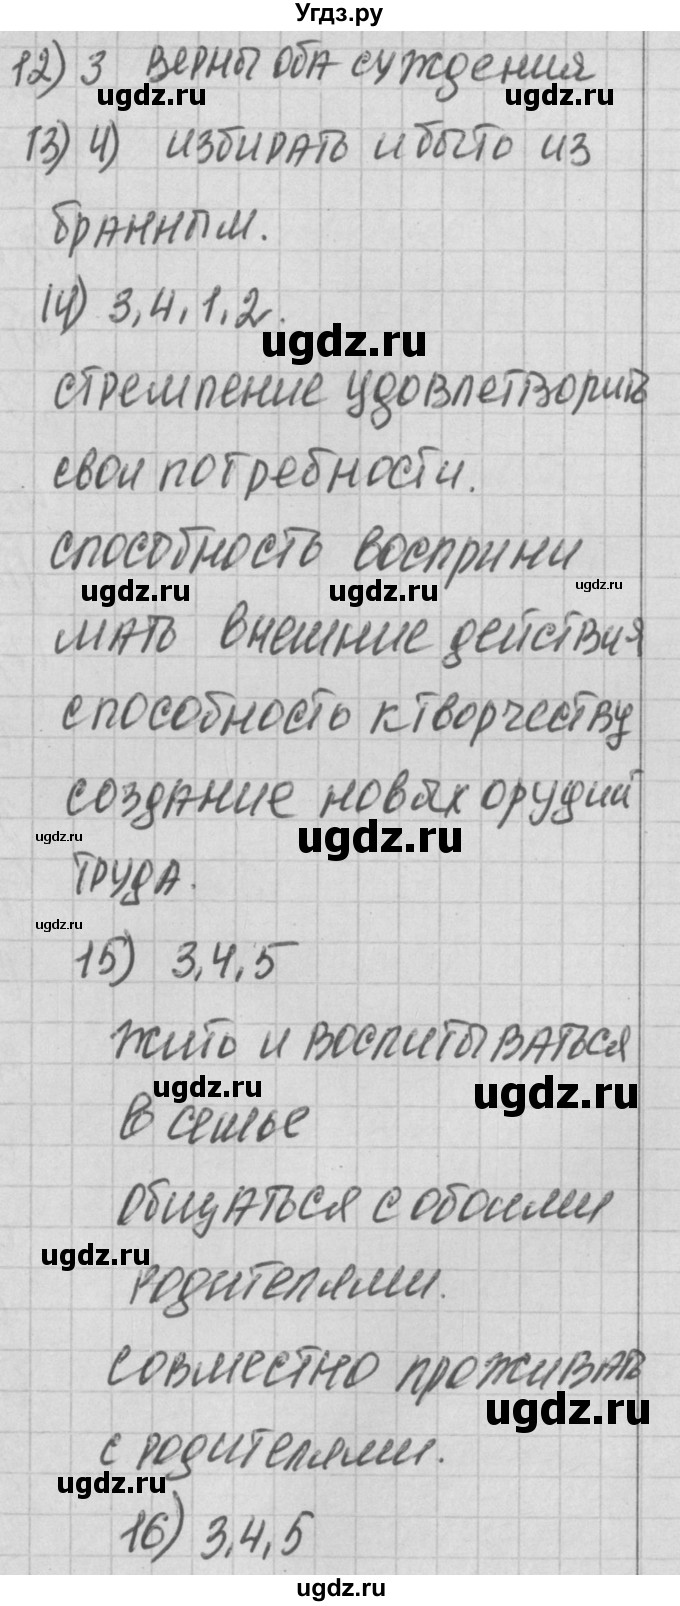 Угдз.ру
12) 3 верны оба суждения
ugdz.ru ugdz.ru
13) 4) избирать и быть из
бранным.
14) 3,4,1,2.
ugdz.ru
стремление удовлетворить
свои потребности.
способность восприни
ugdz.ru ugdz.ru ugdz.ru
мать внешние действия
способность к творчеству
создание новых орудий
ugdz.ru ugdz.ru
труда.
ugdz.ru
15) 3,4,5
жить и воспитываться
ugdz.ru ugdz.ru
в семье
общаться с обоими
ugdz.ru
родителями.
совместно проживать
ugdz.ru
с родителями.
ugdz.ru
16) 3,4,5
ugdz.ru